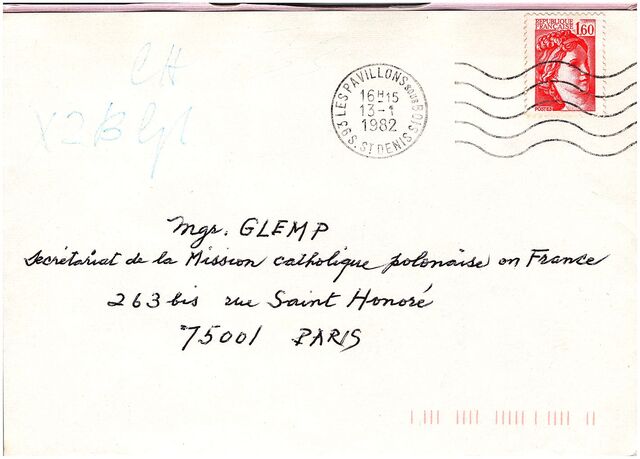 REPUBLIQUE
FRANÇAISE
1,60
POSTES
93 LES PAVILLONS SOUS BOIS
16H15
13-1
1982
S. ST DENIS
CH
Mgr. GLEMP
Secrétariat de la Mission catholique polonaise en France
263 bis rue Saint Honoré
75001 PARIS